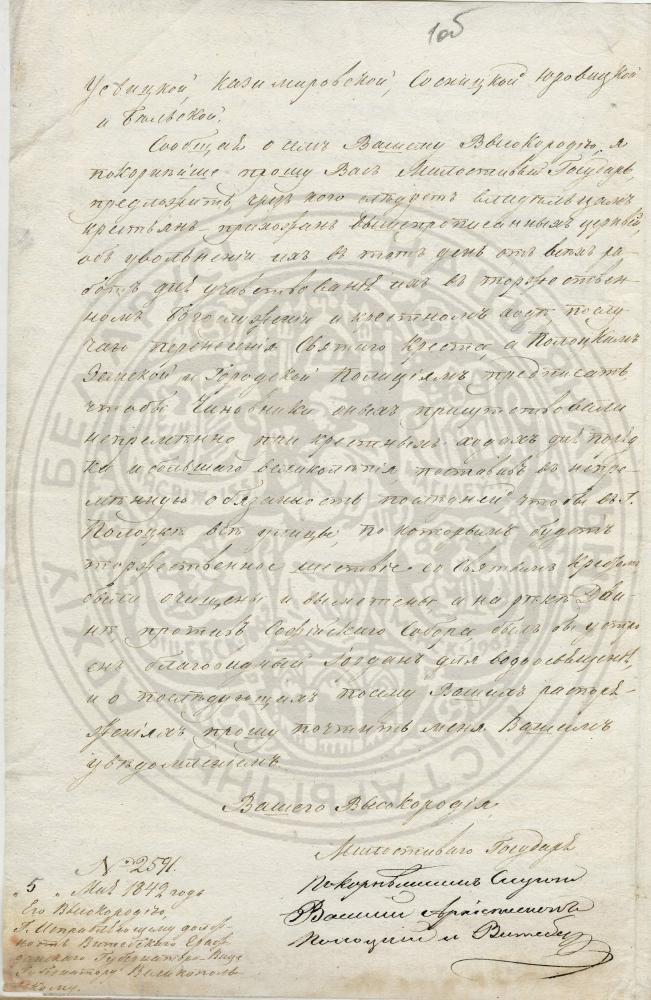 106
Усвицкой, Казимировской, Сосницкой Юровицкой
и Бѣльской.
Сообщая о семъ Вашему Высокородію, я
покорнѣйше прошу Васъ Милостивый Государь,
предложить чрезъ кого слѣдуетъ владѣльцамъ
крестьянъ - прихожанъ вышепрописанныхъ церквей,
объ увольненіи ихъ въ тотъ день отъ всѣхъ ра-
ботъ для участвованія ихъ въ торжествен-
номъ богослуженіи и крестномъ ходѣ, по слу-
чаю перенесенія Святаго Креста, а Полоцкимъ
Земской и Городской Полиціямъ предписать,
чтобы Чиновники оныхъ присутствовали
непремѣнно при крестныхъ ходахъ для поряд-
ка и большаго великолѣпія, поставивъ въ непре-
мѣнную обязанность послѣдней, чтобы въ г.
Полоцкѣ всѣ улицы, по которымъ будетъ
торжественное шествіе со Святымъ Крестомъ
были очищены и выметены а на рѣкѣ Дви-
нѣ противъ Софійскаго Собора былъ бы устро-
енъ благовидный Іорданъ для водоосвященія,
и о послѣдующихъ посему Вашихъ распоря-
женіяхъ прошу почтить меня Вашимъ
увѣдомленіемъ.
Вашего Высокородія
Милостиваго Государя
покорнѣйшимъ слугою
Василій Архіепископъ
Полоцкій и Витебскій
№ 2591.
„5„ Мая 1842 года
Его Высокородію,
Г. Исправляющему долж-
ность Витебскаго Граж-
данскаго Губернатора Вице
Губернатору